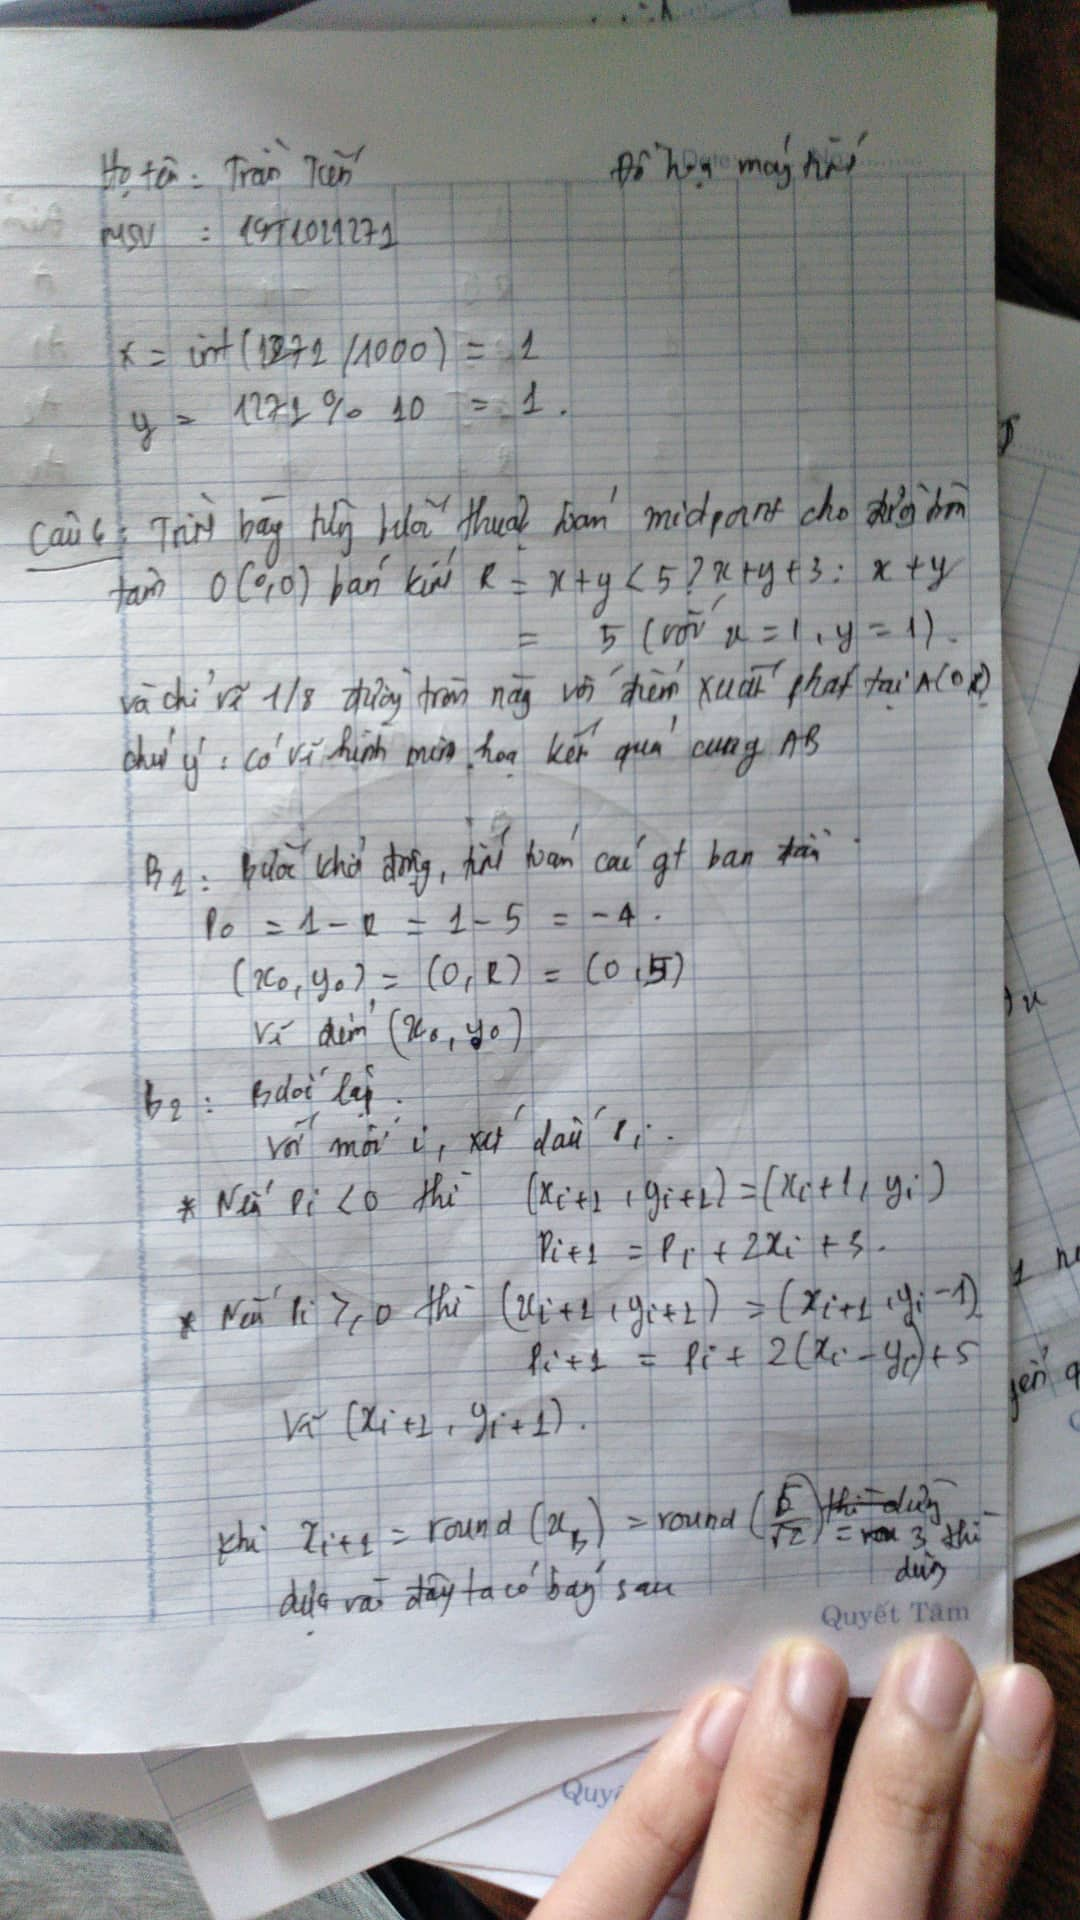 Họ tên : Trần Tiến Đồ họa máy tính
MSV : 19T1021271
x = int(1271 /1000) = 1
y = 1271 % 10 = 1.
Câu 6: Trình bày từng bước thuật toán midpoint cho đường tròn
tâm O(0,0) bán kính R = x+y < 5 ? x+y+3 : x+y
= 5 (với x = 1, y = 1).
và chỉ vẽ 1/8 đường tròn này với điểm xuất phát tại A(0,R)
chú ý : có vẽ hình minh họa kết quả cung AB
B1 : Bước khởi động, tính toán các gt ban đầu
P0 = 1 - R = 1 - 5 = -4.
(x0, y0) = (0, R) = (0, 5)
Vẽ điểm (x0, y0)
B2 : Bước lặp.
với mỗi i, xét dấu Pi.
* Nếu Pi < 0 thì (xi+1, yi+1) = (xi+1, yi)
Pi+1 = Pi + 2xi + 3.
* Nếu Pi ≥ 0 thì (xi+1, yi+1) = (xi+1, yi-1)
Pi+1 = Pi + 2(xi - yi) + 5
Vẽ (xi+1, yi+1).
khi xi+1 = round(xB) = round(5/√2) = 3 thì
dừng
dựa vào đây ta có bảng sau
Quyết Tâm